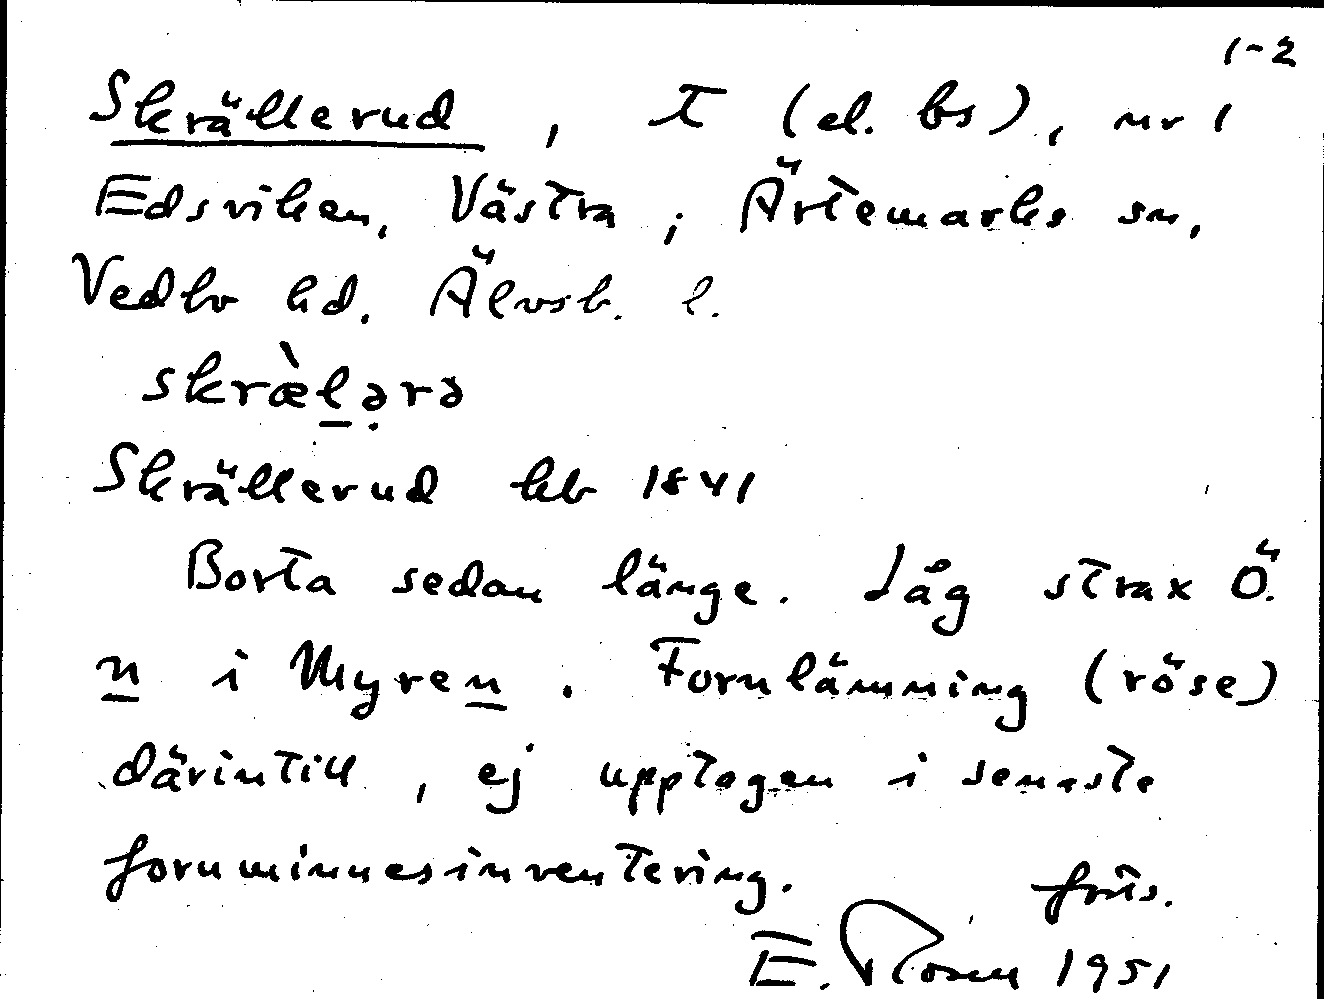 1-2
Skrällerud, T (el. bs), nr 1
Edsviken, Västra; Ärtemarks sn,
Vedbo hd. Älvsb. l.
skræ̀l̠ə̣rə
Skrällerud kb 1841
Borta sedan länge. Låg strax Ö.
n i Myren. Fornlämning (röse)
därintill, ej upptagen i senaste
fornminnesinventering. forts.
E. Rosen 1951